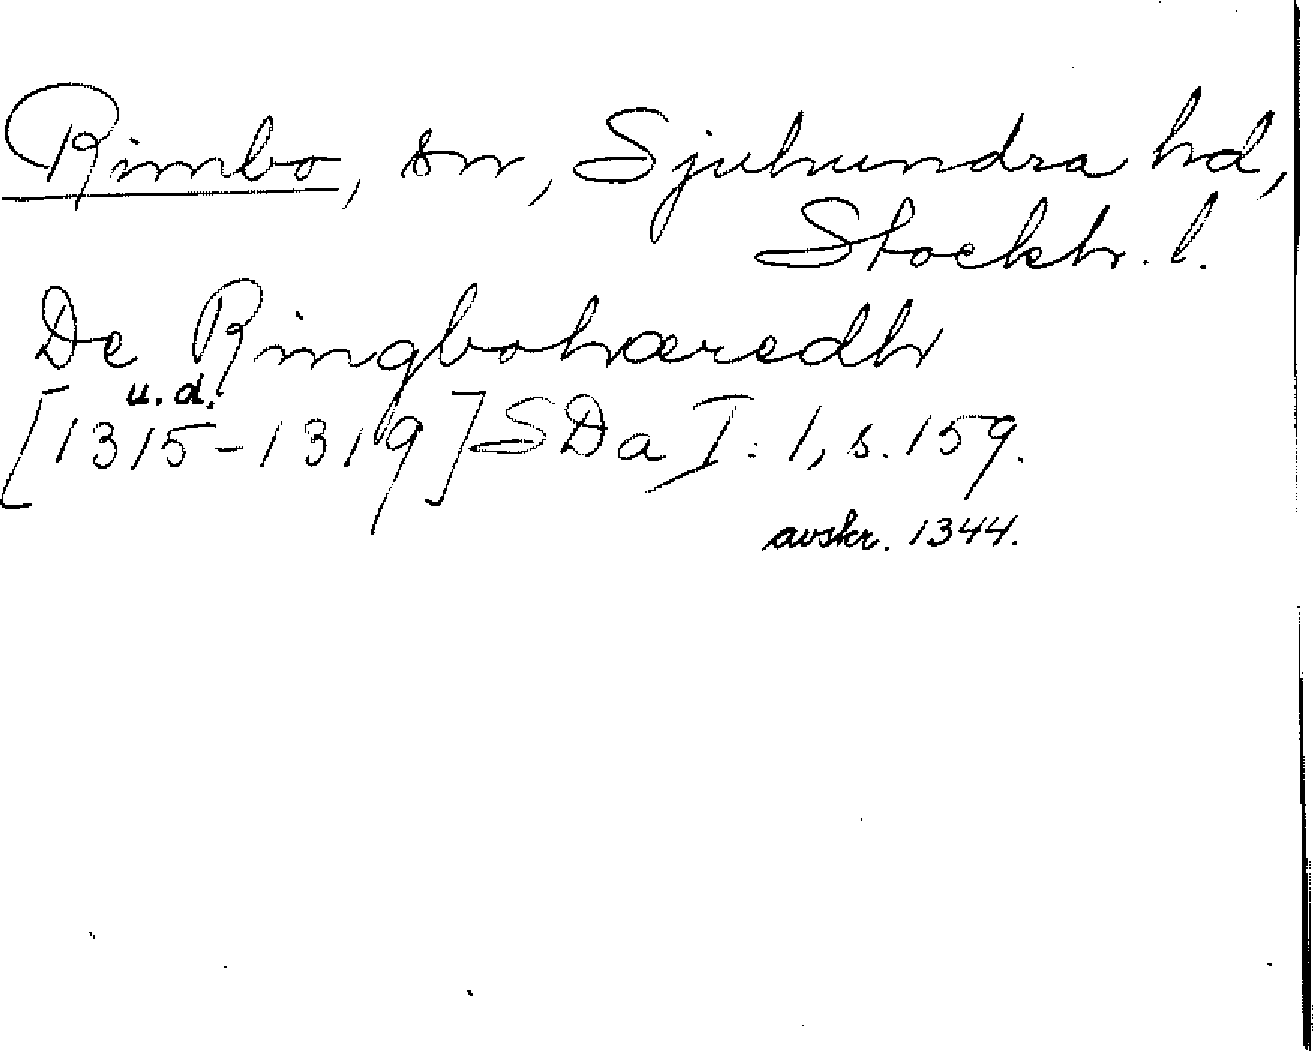 Rimbo, sn, Sjuhundra hd,
Stockh. l.
De Ringbohæredh
u. d.
[1315-1319] SDa I: 1, s. 159.
avskr. 1344.